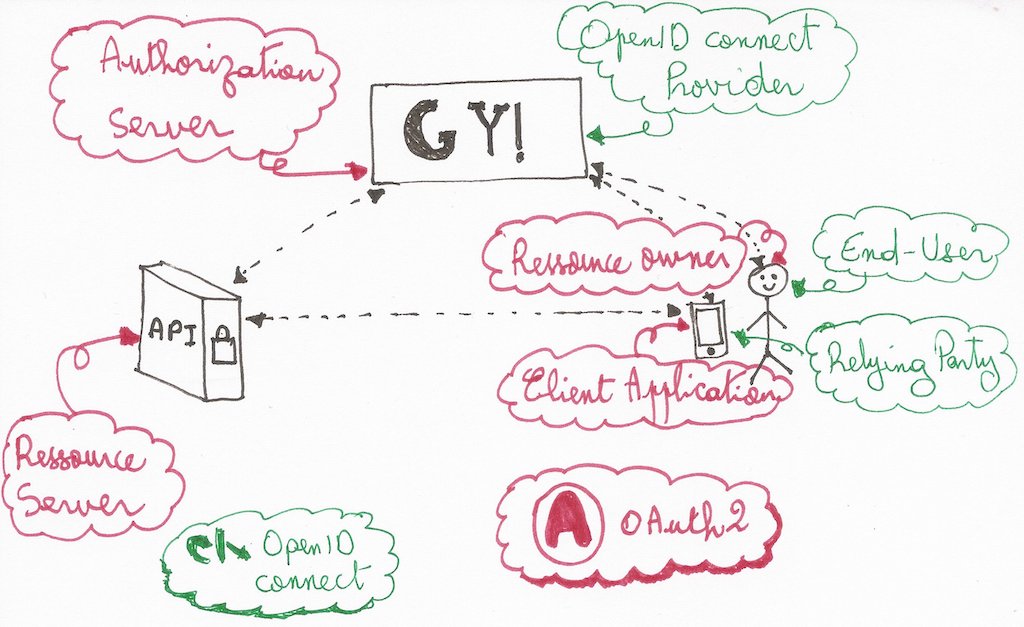 Authorization
Server
OpenID connect
Provider
GY!
Ressource owner
End-User
API
Client Application
Relying Party
Ressource
Server
OpenID
connect
A OAuth2